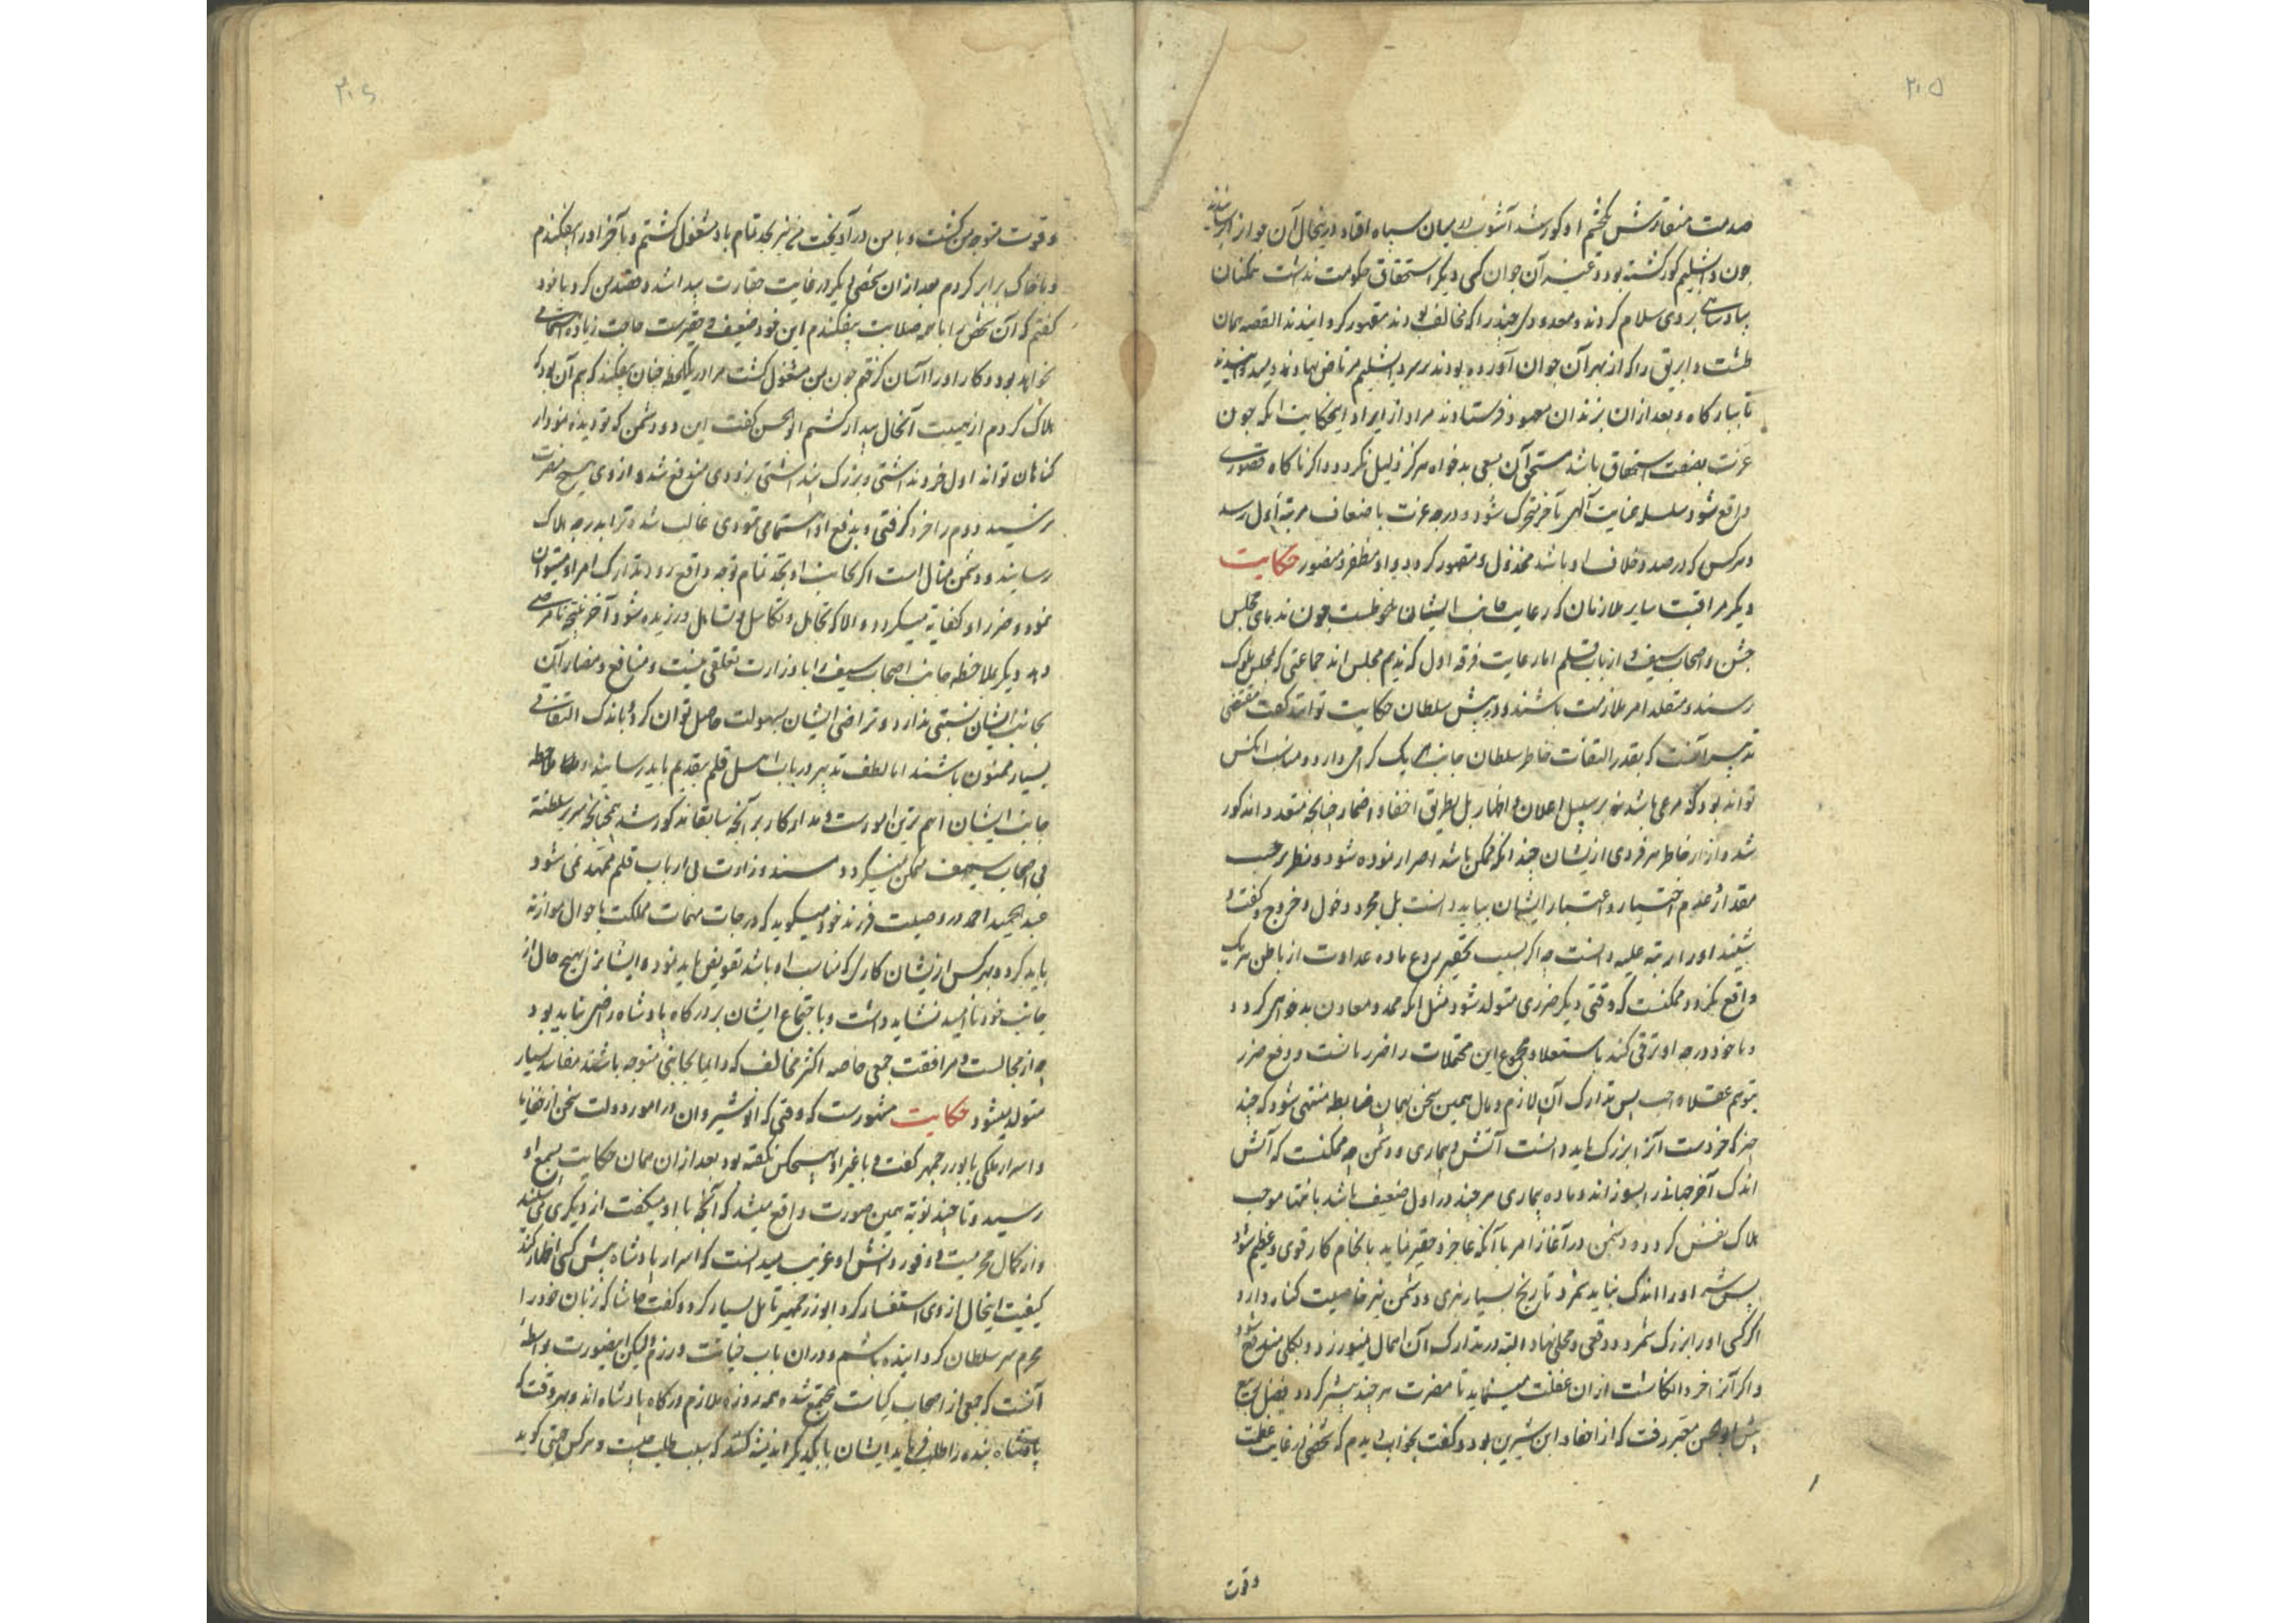 ۲۰۵
صدمت منقارش بچشم او کور شد آشوب در میان سپاه افتاد در نحال آن جوان
چون دابشلیم کور گشته بود و غیر آن جوان کسی دیگر استحقاق حکومت نداشت همکنان
بپادشاهی بروی سلام کردند و معدودی چند را که مخالف بودند مقهور گردانیدند القصه همان
طشت و ابریق را که از بهر آن جوان آورده بودند بر سر دابشلیم مرتاض نهادند و میدوانیدند
تا ببارگاه و بعد از آن بزندان معهود فرستادند مراد از ایراد این حکایت آنکه چون
عزت بصفت استحقاق باشد مستحق آن بسعی بدخواه هرگز ذلیل نگردد و اگر ناگاه قصوری
واقع شود سلسله عنایت الهی بآخر متحرک شود و درجه عزت باضعاف مرتبه اول رسد
و هر کس که در صدد خلاف او باشد مخذول و مقهور گردد و او مظفر و منصور حکایت
دیگر مراقبت سایر ملازمان که رعایت جانب ایشان ملحوظست چون ندمای مجلس
جشن و اصحاب سیف و ارباب قلم اما رعایت فرقه اول که ندیم مجلس اند جماعتی که بمجلس ملوک
رسند و متقلد امر ملازمت باشند و در پیش سلطان حکایت توانند گفت مقتضی
تدبیر آنست که بقدر التفات خاطر سلطان جانب هر یک گرامی دارد و مناسب آنکس
تواند بود که مرعی باشد نه بر سبیل اعلان و اظهار بل بطریق اخفا و اضمار چنانچه متعدد مذکور
شد و آزار خاطر هر فردی ازیشان چندانکه ممکن باشد احتراز نموده شود و نظر بر حسب
مقدار علوم اختیار و اعتبار ایشان نباید داشت بل بمجرد دخول و خروج و گفت و
شنید او را رتبه علیه دانست چه اگر بسبب تحقیر مردع ماده عداوت از باطن هر یک
واقع نگردد ممکنست که وقتی دیگر ضرری متولد شود مثل آنکه ممد و معاون بدخواهی گردد
و با خود درجه او ترقی کند باستعلا و مجموع این محتملات را ضررهاست و دفع ضرر
بتوهم عقلا واجب پس تدارک آن لازم و مآل همین سخن بهمان ضابطه منتهی شود که چند
چیز که خردست آنرا بزرگ باید دانست آتش و بیماری و دشمن چه ممکنست که آتش
اندک آخر جهانی را بسوزاند و ماده بیماری هر چند در اول ضعیف باشد بانتها موجب
هلاک نفس گردد و دشمن در آغاز امر با آنکه عاجز و حقیر نماید بانجام کار قوی و عظیم شود
پس شر او را اندک نباید شمرد تاریخ بسیار نری و دشمن نیز خاصیت گناه دارد
اگر کسی او را بزرگ شمرد و وقعی و محلی نهاد البته در تدارک آن اهمال نورزد و بکلی مندفع شود
و اگر آنرا خرد انگاشت از آن غفلت مینماید تا مضرت هر چند بیشتر گردد فضل بن ربیع
پیش ابوالحسن معبر رفت که از احفاد ابن سیرین بود و گفت بخواب دیدم که شخصی در غایت عظمت
وقوت
۲۰۶
و قوت متوجه من گشت و با من درآویخت من نیز بجد تمام باو مشغول گشتم و بآخر او را بیفکندم
و با خاک برابر کردم بعد از آن شخصی دیگر در غایت حقارت پیدا شد و قصد من کرد با خود
گفتم که آن شخص را با همه صلابت بیفکندم این خود ضعیف و حقیرست حاجت زیاده اهتمامی
نخواهد بود و کار او را آسان گرفتم چون بمن مشغول گشت مرا در یک لحظه چنان بیفکند که بیم آن بود که
هلاک کردم از هیبت آنحال بیدار گشتم ابوالحسن گفت این دو دشمن که تو دیده نمودار
گناهان تواند اول خرد نداشتی و بزرگ پنداشتی بزودی مندفع شد و از وی هیچ مضرت
نرسید دوم را خرد گرفتی و بدفع او اهتمامی ننمودی غالب شد و ترا بدرجه هلاک
رسانید و دشمن مثال است اگر بجانب او بجد تمام توجه واقع رود تدارک امر او میتوان
نمود و ضرر او کفایه میگردد و الا که تجاهل و تکاسل و تساهل ورزیده شود آخر نتیجه نامرضی
دهد دیگر ملاحظه جانب اصحاب سیف را با وزارت تعلقی نیست و منافع و مضار آن
بجانب ایشان نسبتی ندارد و تراضی ایشان بسهولت حاصل توان کرد و باندک التفاتی
بسیار ممنون باشند اما لطف تدبیر در باب اهل قلم بتقدیم باید رسانید و ملاحظه
جانب ایشان اهم ترین امورست و مدار کار بر آنچه سابقا مذکور شد همچنانچه سریر سلطنة
بی اصحاب سیف ممکن نمیگردد مسند وزارت بی ارباب قلم ممهد نمی شود
عبدالحمید احمد در وصیت فرزند خود میگوید که درجات مهمات مملکت باحوال موازنه
باید کرد و هر کس ازیشان کاری که مناسب او باشد تفویض باید نمود و ایشانرا بهیچ حال از
جانب خود ناامید نشاید داشت و باجتماع ایشان بر درگاه پادشاه راضی نباید بود
چه از مجالست و مرافقت جمعی خاصه اکثر مخالف که دایما بجانبی متوجه باشند مفاسد بسیار
متولد میشود حکایت مشهورست که وقتی که انوشیروان در امور دولت سخن از خفایا
و اسرار ملکی با بوزرجمهر گفت و با غیر او هیچکس نگفته بود بعد از آن همان حکایت بسمع او
رسید و تا چند نوبة همین صورت واقع میشد که آنچه با او میگفت از دیگری می شنید
و از کمال محرمیت و وفور دانش او غریب میدانست که اسرار پادشاه پیش کسی اظهار کند
کیفیت اینحال از وی استفسار کرد ابوزرجمهر تامل بسیار کرد و گفت حاشا که زبان خود را
محرم سر سلطان گردانیده باشم و در آن باب خیانت ورزم لیکن اینصورت واسطه
آنست که جمعی از اصحاب کیاست مجتمع شده همه روزه ملازم درگاه پادشاه اند و هر وقت که
پادشاه بنده را طلب فرماید ایشان با یکدیگر اندیشه کنند که سبب طلب چیست و هر کس چیزی گوید